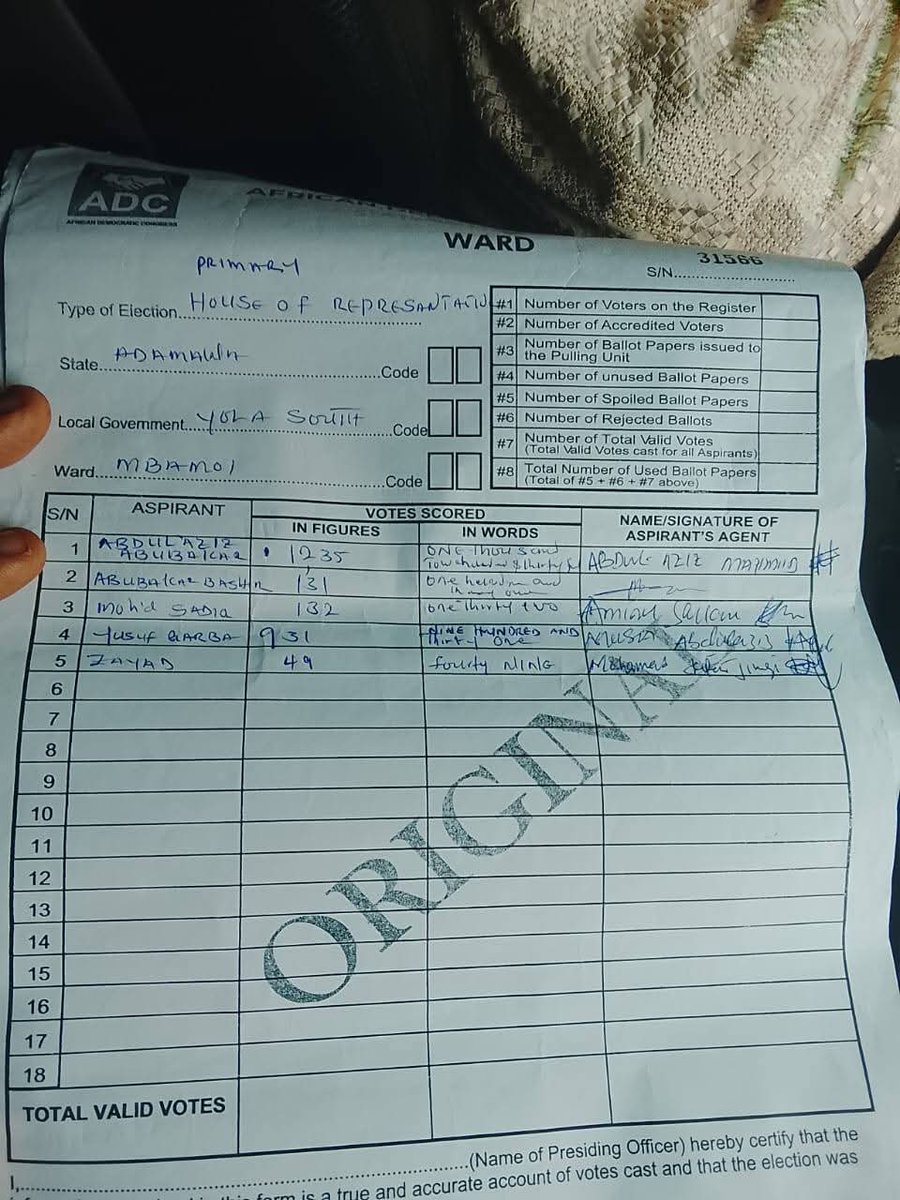 ADC
AFRICAN DEMOCRATIC CONGRESS
WARD
31566
S/N
PRIMARY
Type of Election HOUSE OF REPRESANTATIV
State ADAMAWA Code
Local Government YOLA SOUTH Code
Ward MBAMOI Code
#1 Number of Voters on the Register
#2 Number of Accredited Voters
#3 Number of Ballot Papers issued to
the Pulling Unit
#4 Number of unused Ballot Papers
#5 Number of Spoiled Ballot Papers
#6 Number of Rejected Ballots
#7 Number of Total Valid Votes
(Total Valid Votes cast for all Aspirants)
#8 Total Number of Used Ballot Papers
(Total of #5 + #6 + #7 above)
S/N ASPIRANT VOTES SCORED NAME/SIGNATURE OF
IN FIGURES IN WORDS ASPIRANT'S AGENT
1 ABDUL'AZIZ
ABUBAKAR 1235 ONE thousand
ABDUL AZIZ MAHMUD
2 ABUBAKAR BASHIR 131 One and
one
3 Moh'd SADIQ 132 one thirty two Aminu
4 YUSUF GARBA 931 NINE HUNDRED AND
thirty one MUSA Abdulazis
5 ZAYAD 49 fourty NINE
6
7
8
9
10
11
12
13
14
15
16
17
18
ORIGINAL
TOTAL VALID VOTES
I, (Name of Presiding Officer) hereby certify that the
this form is a true and accurate account of votes cast and that the election was